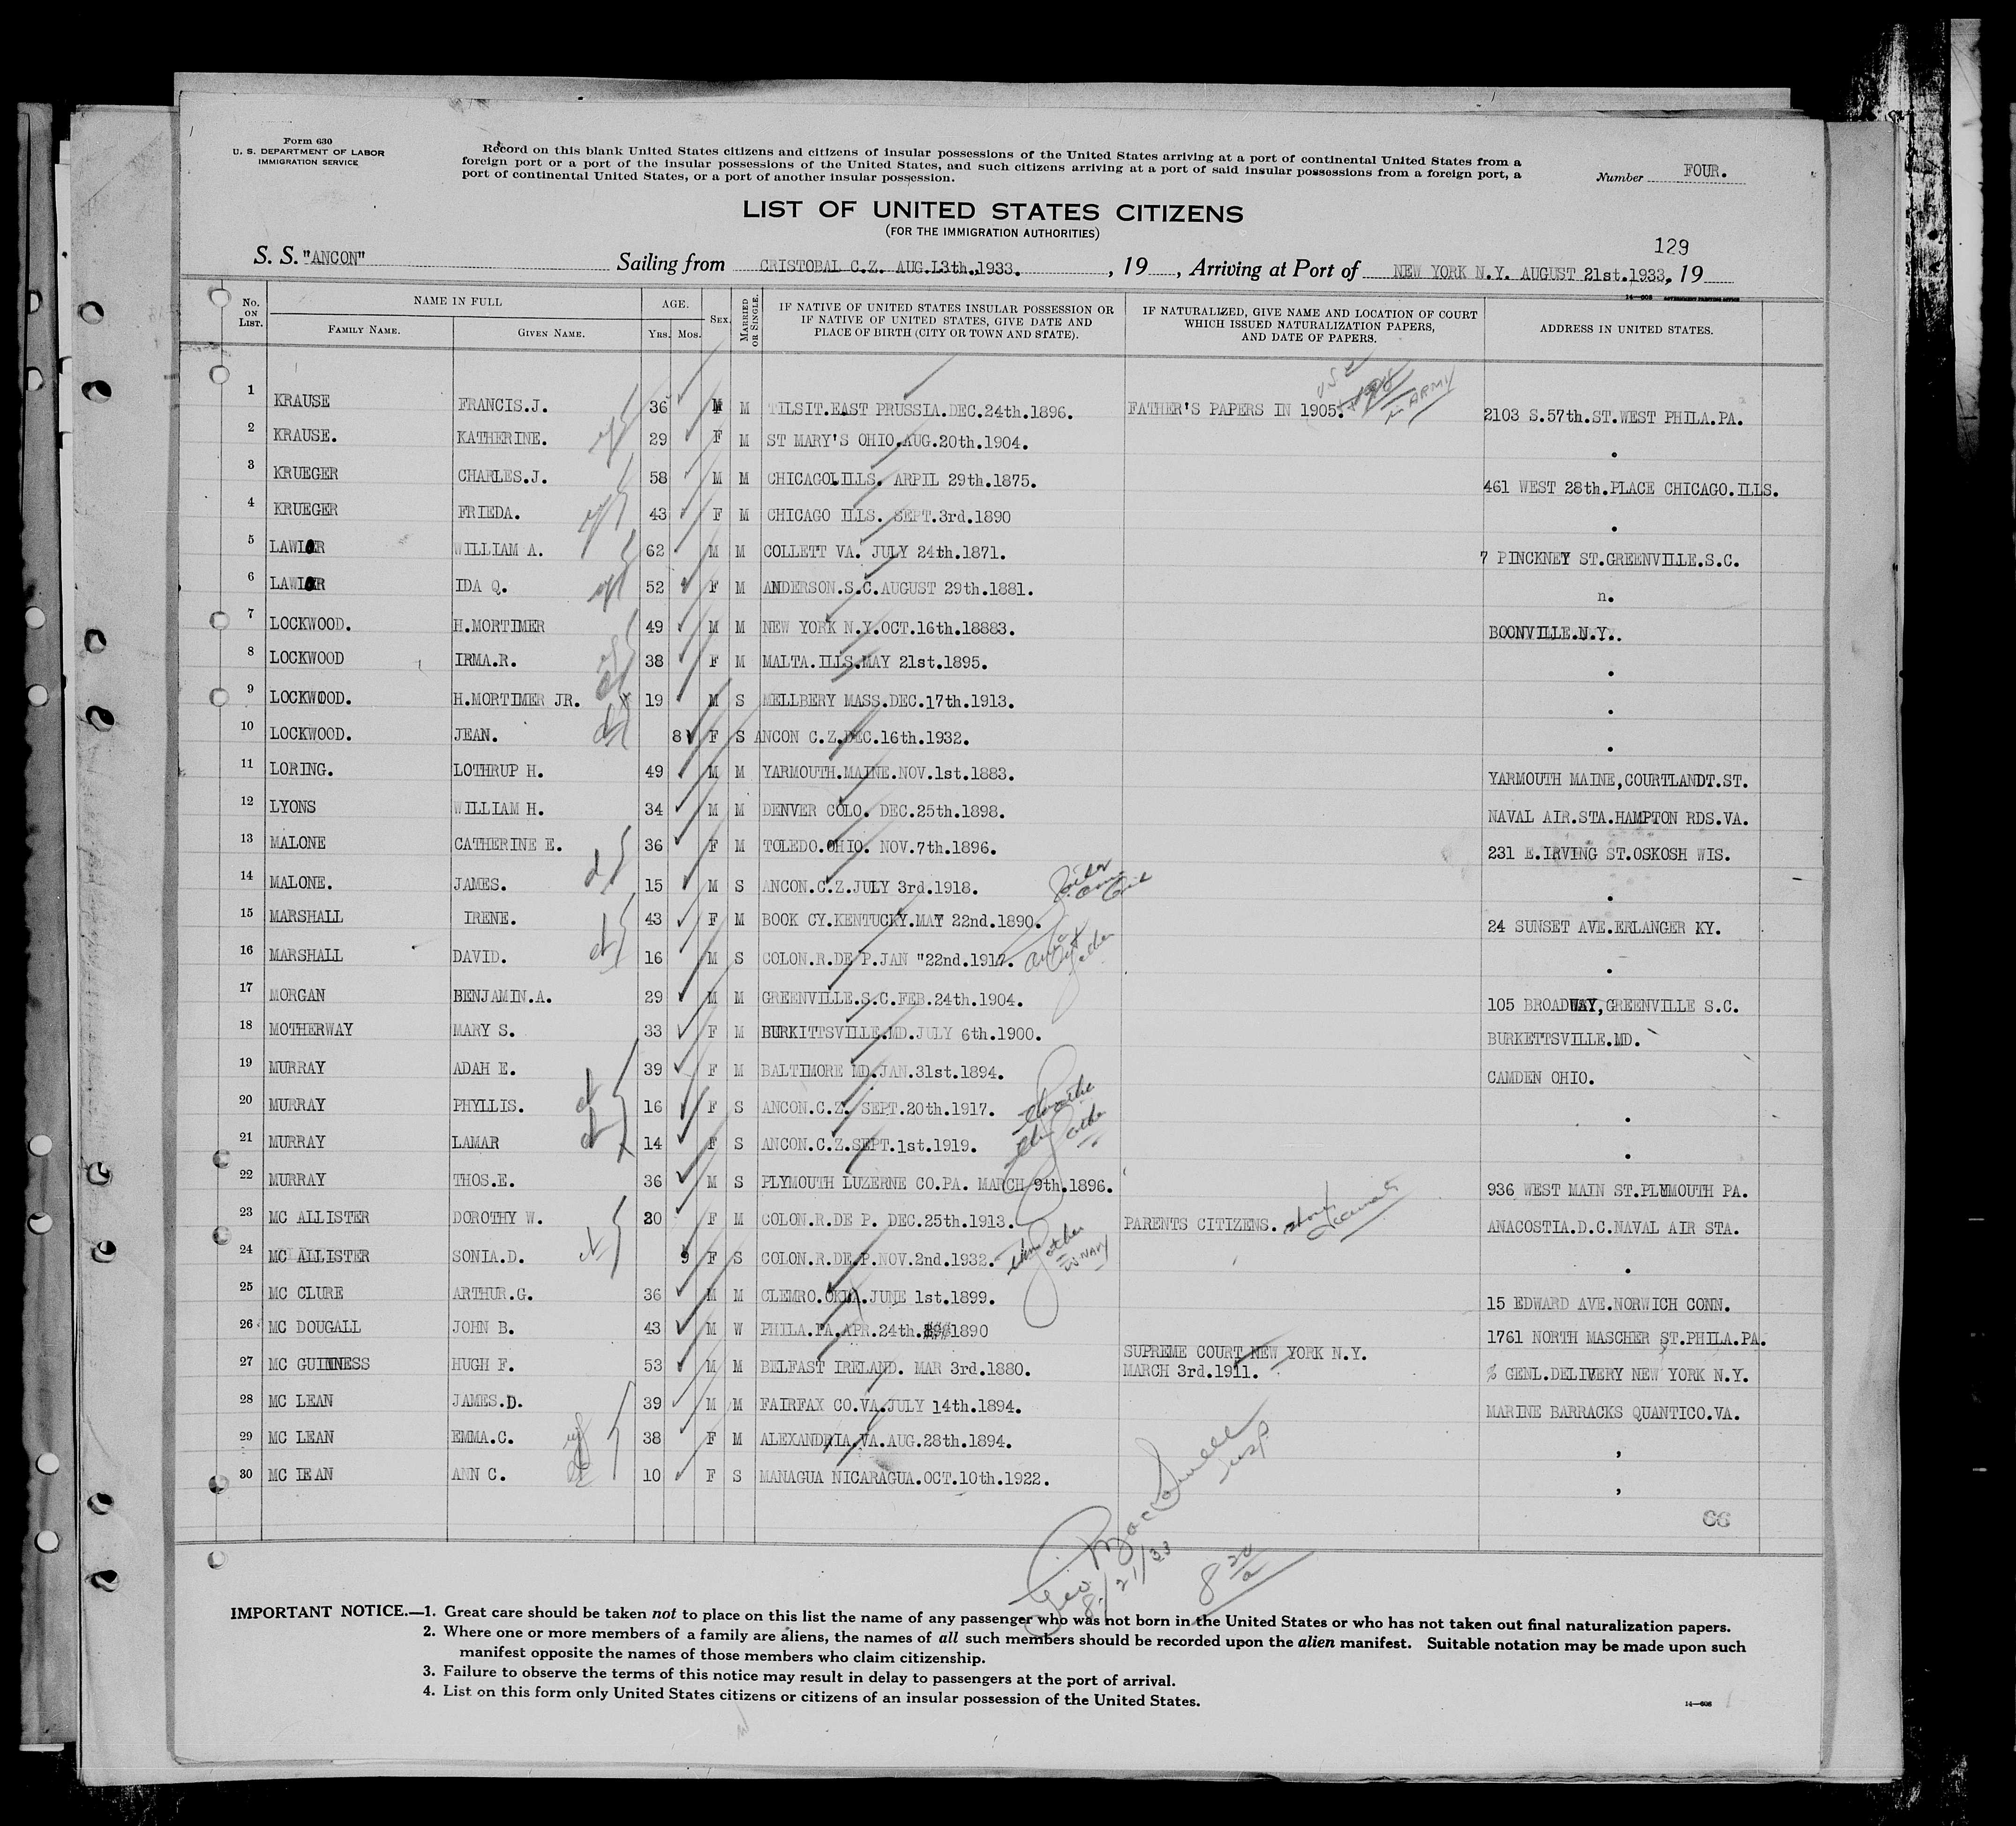 Form 630
U. S. DEPARTMENT OF LABOR
IMMIGRATION SERVICE
Record on this blank United States citizens and citizens of insular possessions of the United States arriving at a port of continental United States from a
foreign port or a port of the insular possessions of the United States, and such citizens arriving at a port of said insular possessions from a foreign port, a
port of continental United States, or a port of another insular possession.
Number FOUR.
LIST OF UNITED STATES CITIZENS
(FOR THE IMMIGRATION AUTHORITIES)
129
S. S. "ANCON" Sailing from CRISTOBAL C.Z. AUG.13th.,1933. , 19 , Arriving at Port of NEW YORK N.Y. AUGUST 21st.1933, 19
14—608 GOVERNMENT PRINTING OFFICE
No. ON LIST. NAME IN FULL FAMILY NAME. GIVEN NAME. AGE. Yrs. Mos. SEX. MARRIED OR SINGLE. IF NATIVE OF UNITED STATES INSULAR POSSESSION OR IF NATIVE OF UNITED STATES, GIVE DATE AND PLACE OF BIRTH (CITY OR TOWN AND STATE). IF NATURALIZED, GIVE NAME AND LOCATION OF COURT WHICH ISSUED NATURALIZATION PAPERS, AND DATE OF PAPERS. ADDRESS IN UNITED STATES.
1 KRAUSE FRANCIS.J. 36 M M TILSIT.EAST PRUSSIA.DEC.24th.1896. FATHER'S PAPERS IN 1905. in ARMY 2103 S.57th.ST.WEST PHILA.PA.
2 KRAUSE. KATHERINE. 29 F M ST MARY'S OHIO.AUG.20th.1904.
3 KRUEGER CHARLES.J. 58 M M CHICAGO.ILLS. ARPIL 29th.1875. 461 WEST 28th.PLACE CHICAGO.ILLS.
4 KRUEGER FRIEDA. 43 F M CHICAGO ILLS. SEPT.3rd.1890
5 LAWIOR WILLIAM A. 62 M M COLLETT VA. JULY 24th.1871. 7 PINCKNEY ST.GREENVILLE.S.C.
6 LAWIOR IDA Q. 52 F M ANDERSON.S.C.AUGUST 29th.1881. n.
7 LOCKWOOD. H.MORTIMER 49 M M NEW YORK N.Y.OCT.16th.18883. BOONVILLE.N.Y..
8 LOCKWOOD IRMA.R. 38 F M MALTA.ILLS.MAY 21st.1895.
9 LOCKWOOD. H.MORTIMER JR. 19 M S MELLBERY MASS.DEC.17th.1913.
10 LOCKWOOD. JEAN. 8 F S ANCON C.Z.DEC.16th.1932.
11 LORING. LOTHRUP H. 49 M M YARMOUTH.MAINE.NOV.1st.1883. YARMOUTH MAINE,COURTLANDT.ST.
12 LYONS WILLIAM H. 34 M M DENVER COLO. DEC.25th.1898. NAVAL AIR.STA.HAMPTON RDS.VA.
13 MALONE CATHERINE E. 36 F M TOLEDO.OHIO. NOV.7th.1896. 231 E.IRVING ST.OSKOSH WIS.
14 MALONE. JAMES. 15 M S ANCON.C.Z.JULY 3rd.1918.
15 MARSHALL IRENE. 43 F M BOOK CY.KENTUCKY.MAY 22nd.1890. 24 SUNSET AVE.ERLANGER KY.
16 MARSHALL DAVID. 16 M S COLON.R.DE P.JAN "22nd.1917.
17 MORGAN BENJAMIN.A. 29 M M GREENVILLE.S.C.FEB.24th.1904. 105 BROADWAY,GREENVILLE S.C.
18 MOTHERWAY MARY S. 33 F M BURKITTSVILLE.MD.JULY 6th.1900. BURKETTSVILLE.MD.
19 MURRAY ADAH E. 39 F M BALTIMORE MD.JAN.31st.1894. CAMDEN OHIO.
20 MURRAY PHYLLIS. 16 F S ANCON.C.Z. SEPT.20th.1917.
21 MURRAY LAMAR 14 F S ANCON.C.Z.SEPT.1st.1919.
22 MURRAY THOS.E. 36 M S PLYMOUTH LUZERNE CO.PA. MARCH 9th.1896. 936 WEST MAIN ST.PLYMOUTH PA.
23 MC ALLISTER DOROTHY W. 20 F M COLON.R.DE P. DEC.25th.1913. PARENTS CITIZENS. ANACOSTIA.D.C.NAVAL AIR STA.
24 MC ALLISTER SONIA.D. 9 F S COLON.R.DE.P.NOV.2nd.1932. US NAVY
25 MC CLURE ARTHUR.G. 36 M M CLEMRO.OKLA.JUNE 1st.1899. 15 EDWARD AVE.NORWICH CONN.
26 MC DOUGALL JOHN B. 43 M W PHILA.PA.APR.24th.1890 1761 NORTH MASCHER ST.PHILA.PA.
27 MC GUINNESS HUGH F. 53 M M BELFAST IRELAND. MAR 3rd.1880. SUPREME COURT NEW YORK N.Y. MARCH 3rd.1911. % GENL.DELIVERY NEW YORK N.Y.
28 MC LEAN JAMES.D. 39 M M FAIRFAX CO.VA.JULY 14th.1894. MARINE BARRACKS QUANTICO.VA.
29 MC LEAN EMMA.C. 38 F M ALEXANDRIA.VA.AUG.28th.1894. ,
30 MC LEAN ANN C. 10 F S MANAGUA NICARAGUA.OCT.10th.1922. ,
8/21/33
IMPORTANT NOTICE.—1. Great care should be taken not to place on this list the name of any passenger who was not born in the United States or who has not taken out final naturalization papers.
2. Where one or more members of a family are aliens, the names of all such members should be recorded upon the alien manifest. Suitable notation may be made upon such
manifest opposite the names of those members who claim citizenship.
3. Failure to observe the terms of this notice may result in delay to passengers at the port of arrival.
4. List on this form only United States citizens or citizens of an insular possession of the United States.
14—608